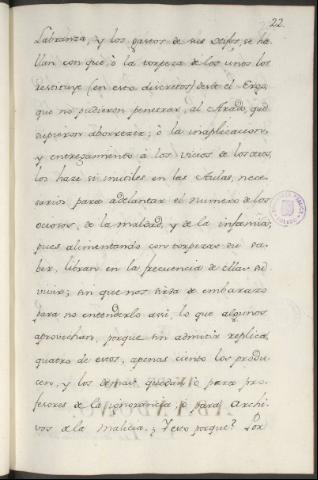 22.
Labranza, y los gastos de sus Hijos, se ha-
llan con que, ò la torpeza de los unos los
restituye (en esto discretos) desde el Ergo,
que no pudieron penetrar, al Arado, que
supieron aborrecer; ò la inaplicacion,
y entregamiento à los vicios de los otros,
los haze si inutiles en las Aulas, nece-
sarios para adelantar el numero de los
ociosos, de la maldad, y de la infamia,
pues alimentando con torpezas su sa-
ber, libran en la frecuencia de ellas su
vivir; sin que nos sirva de embarazo
para no entenderlo asi lo que algunos
aprovechan, porque sin admitir replica,
quatro de estos, apenas ciento los produ-
cen, y los demas quedan ò para pro-
fesores de la ignorancia, ò para Archi-
vos de la malicia. ¿Y esto porque? Por